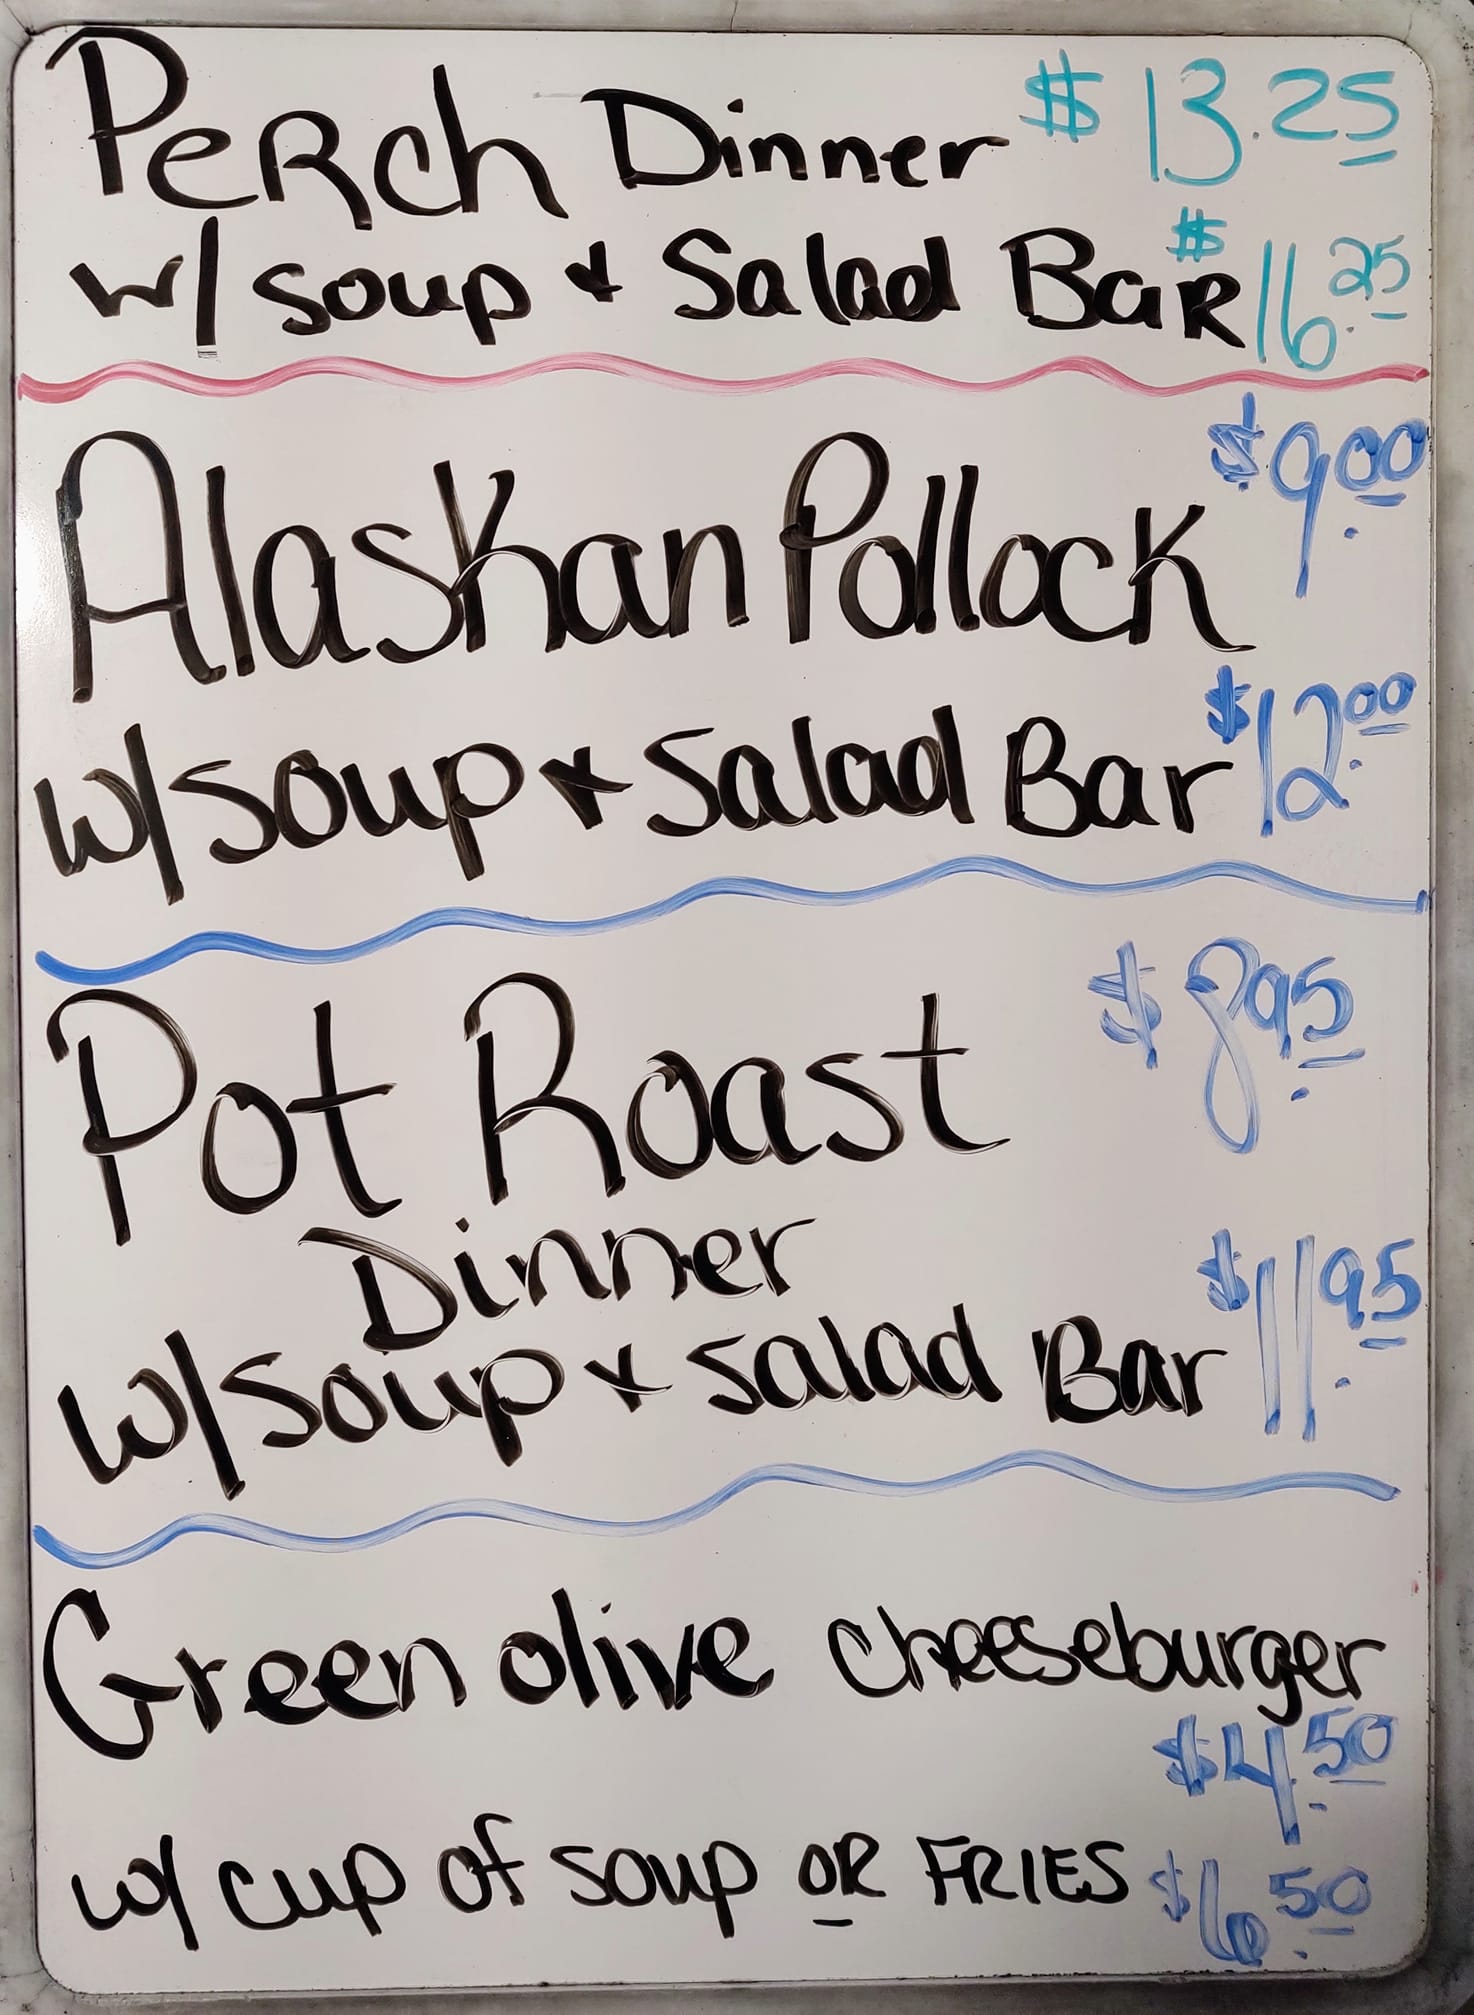 Perch Dinner $13.25
w/ soup & Salad Bar $16.25
Alaskan Pollock $9.00
w/ soup & Salad Bar $12.00
Pot Roast $8.95
Dinner
w/ soup & salad Bar $11.95
Green olive cheeseburger
$4.50
w/ cup of soup OR FRIES $6.50